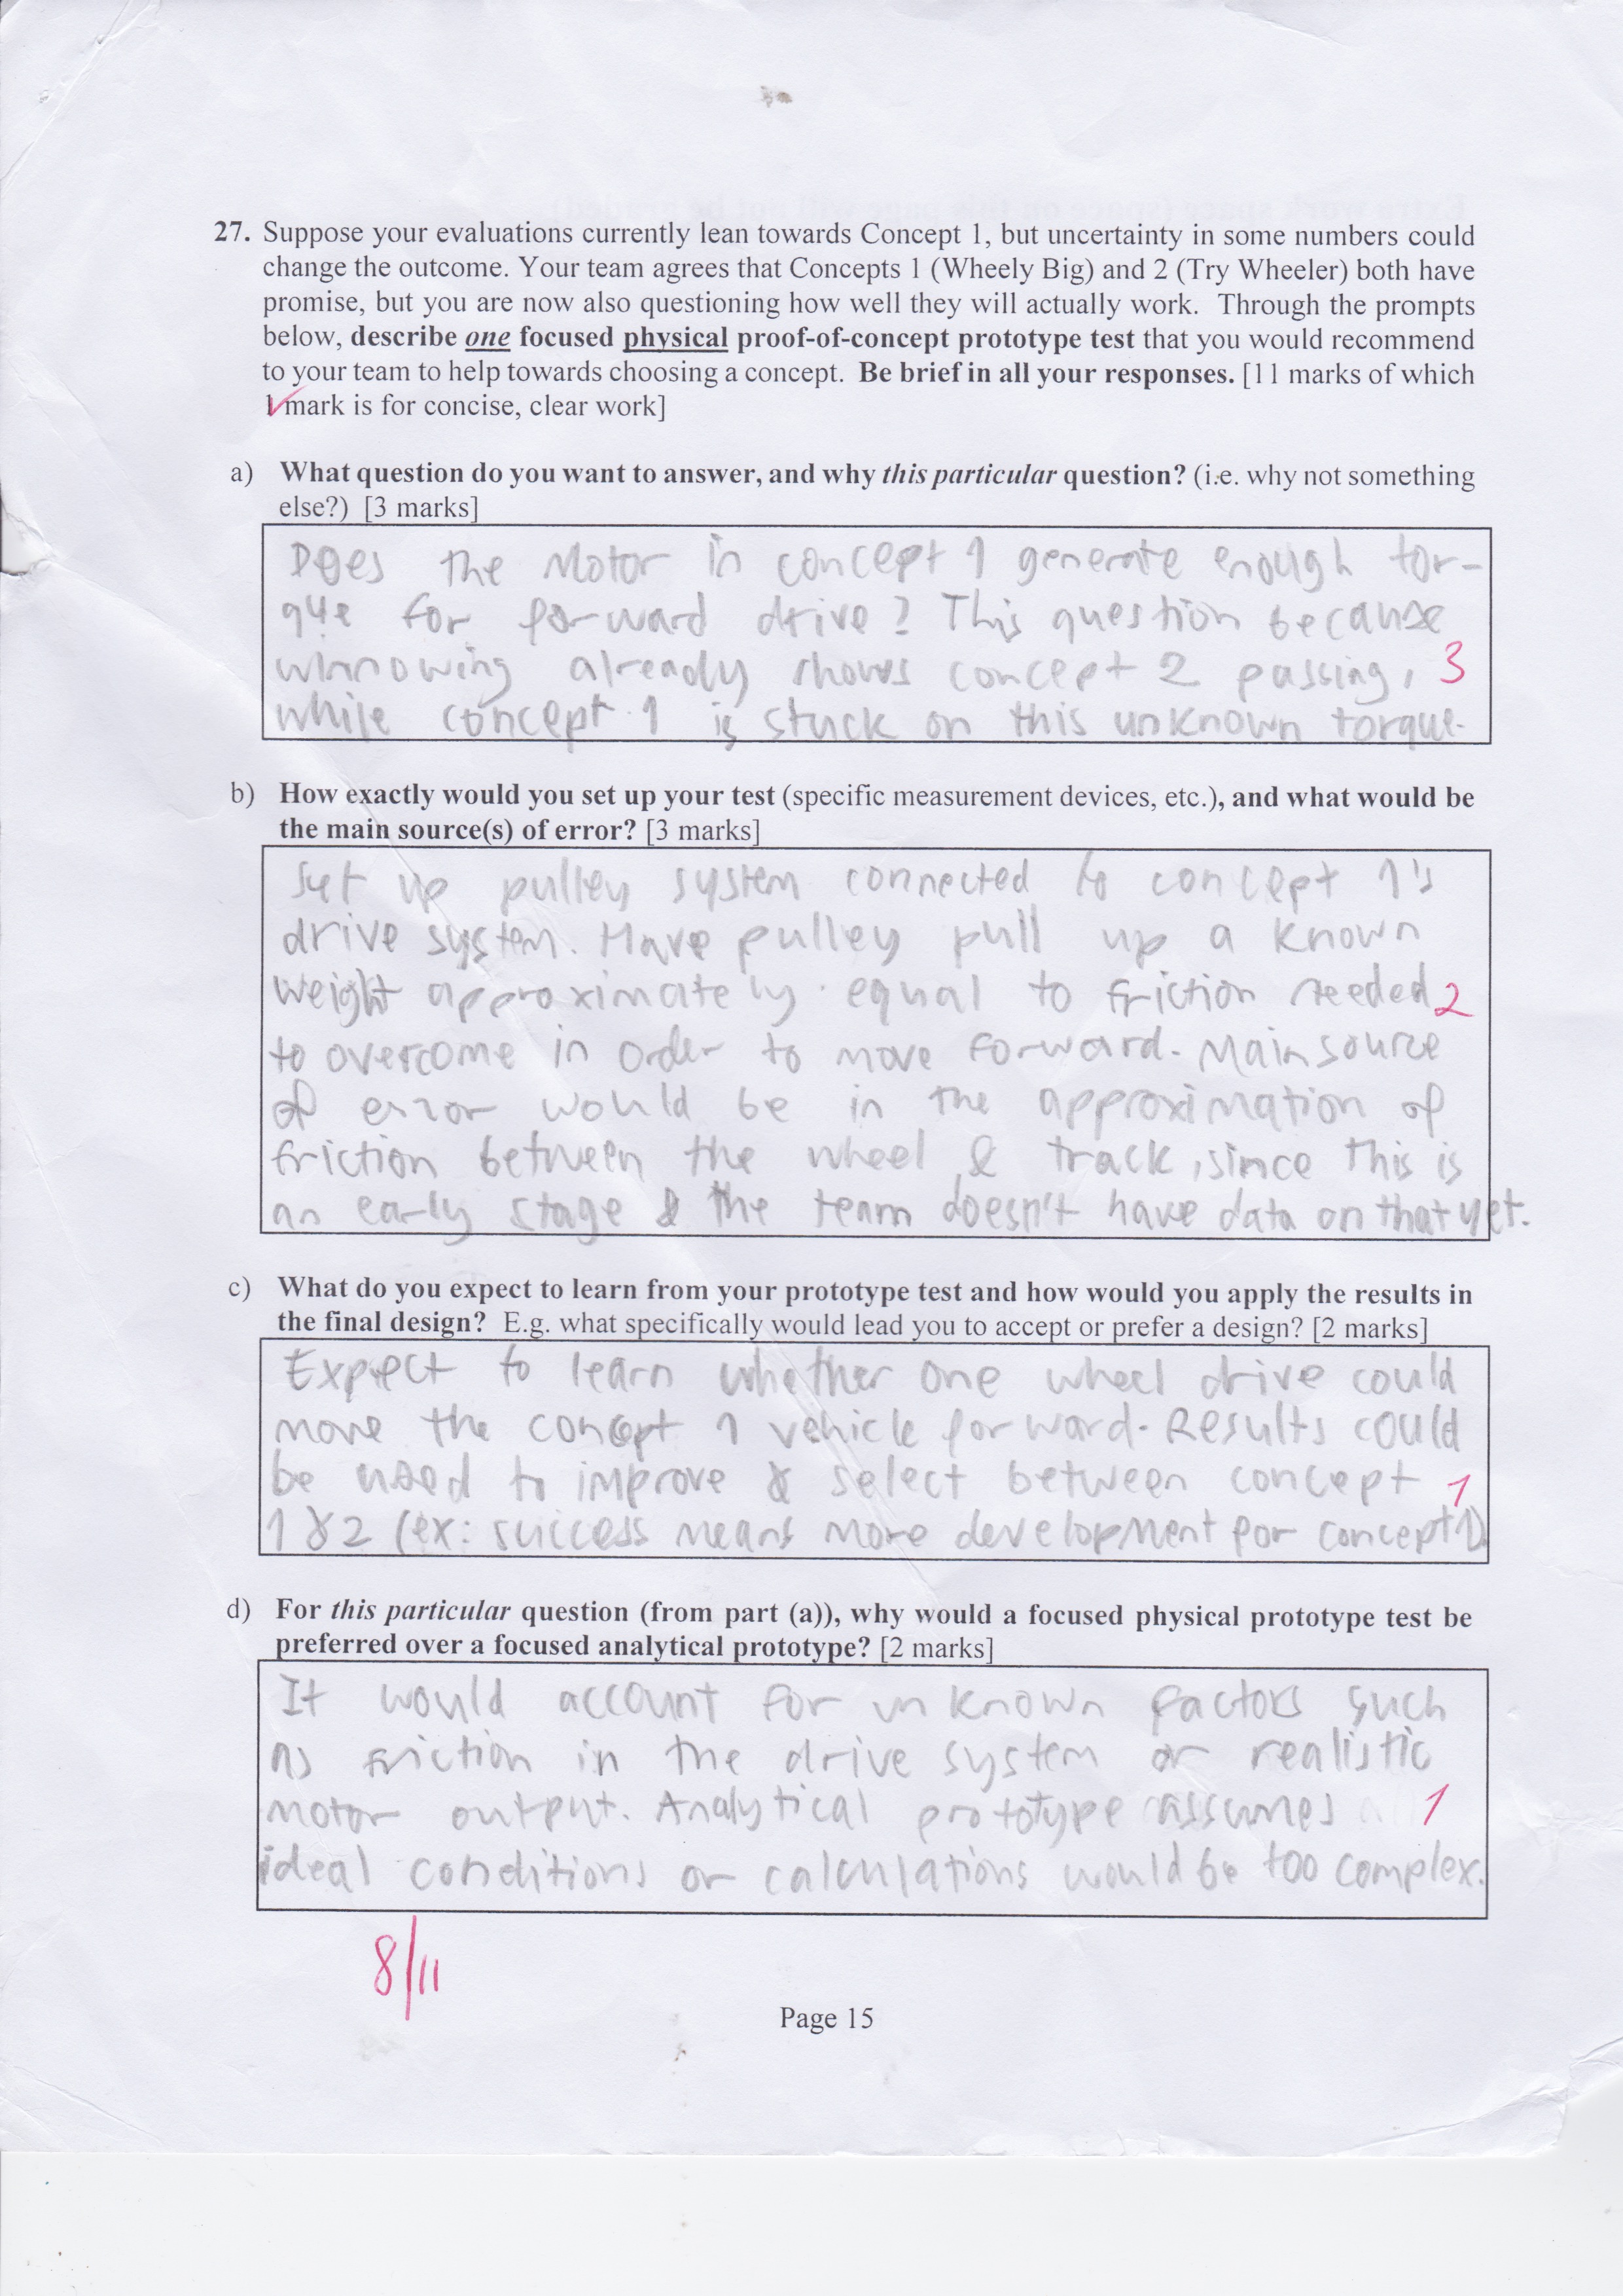 27. Suppose your evaluations currently lean towards Concept 1, but uncertainty in some numbers could
change the outcome. Your team agrees that Concepts 1 (Wheely Big) and 2 (Try Wheeler) both have
promise, but you are now also questioning how well they will actually work. Through the prompts
below, describe one focused physical proof-of-concept prototype test that you would recommend
to your team to help towards choosing a concept. Be brief in all your responses. [11 marks of which
1 mark is for concise, clear work]
a) What question do you want to answer, and why this particular question? (i.e. why not something
else?) [3 marks]
Does the Motor in concept 1 generate enough tor-
que for forward drive? This question because
winnowing already shows concept 2 passing, 3
while concept 1 is stuck on this unknown torque.
b) How exactly would you set up your test (specific measurement devices, etc.), and what would be
the main source(s) of error? [3 marks]
Set up pulley system connected to concept 1's
drive system. Have pulley pull up a known
weight approximately equal to friction needed 2
to overcome in order to move forward. Main source
of error would be in the approximation of
friction between the wheel & track, since this is
an early stage & the team doesn't have data on that yet.
c) What do you expect to learn from your prototype test and how would you apply the results in
the final design? E.g. what specifically would lead you to accept or prefer a design? [2 marks]
Expect to learn whether one wheel drive could
move the concept 1 vehicle forward. Results could
be used to improve & select between concept 1
1 & 2 (ex: success means more development for concept 1).
d) For this particular question (from part (a)), why would a focused physical prototype test be
preferred over a focused analytical prototype? [2 marks]
It would account for unknown factors such
as friction in the drive system or realistic
motor output. Analytical prototype assumes 1
ideal conditions or calculations would be too complex.
8/11
Page 15